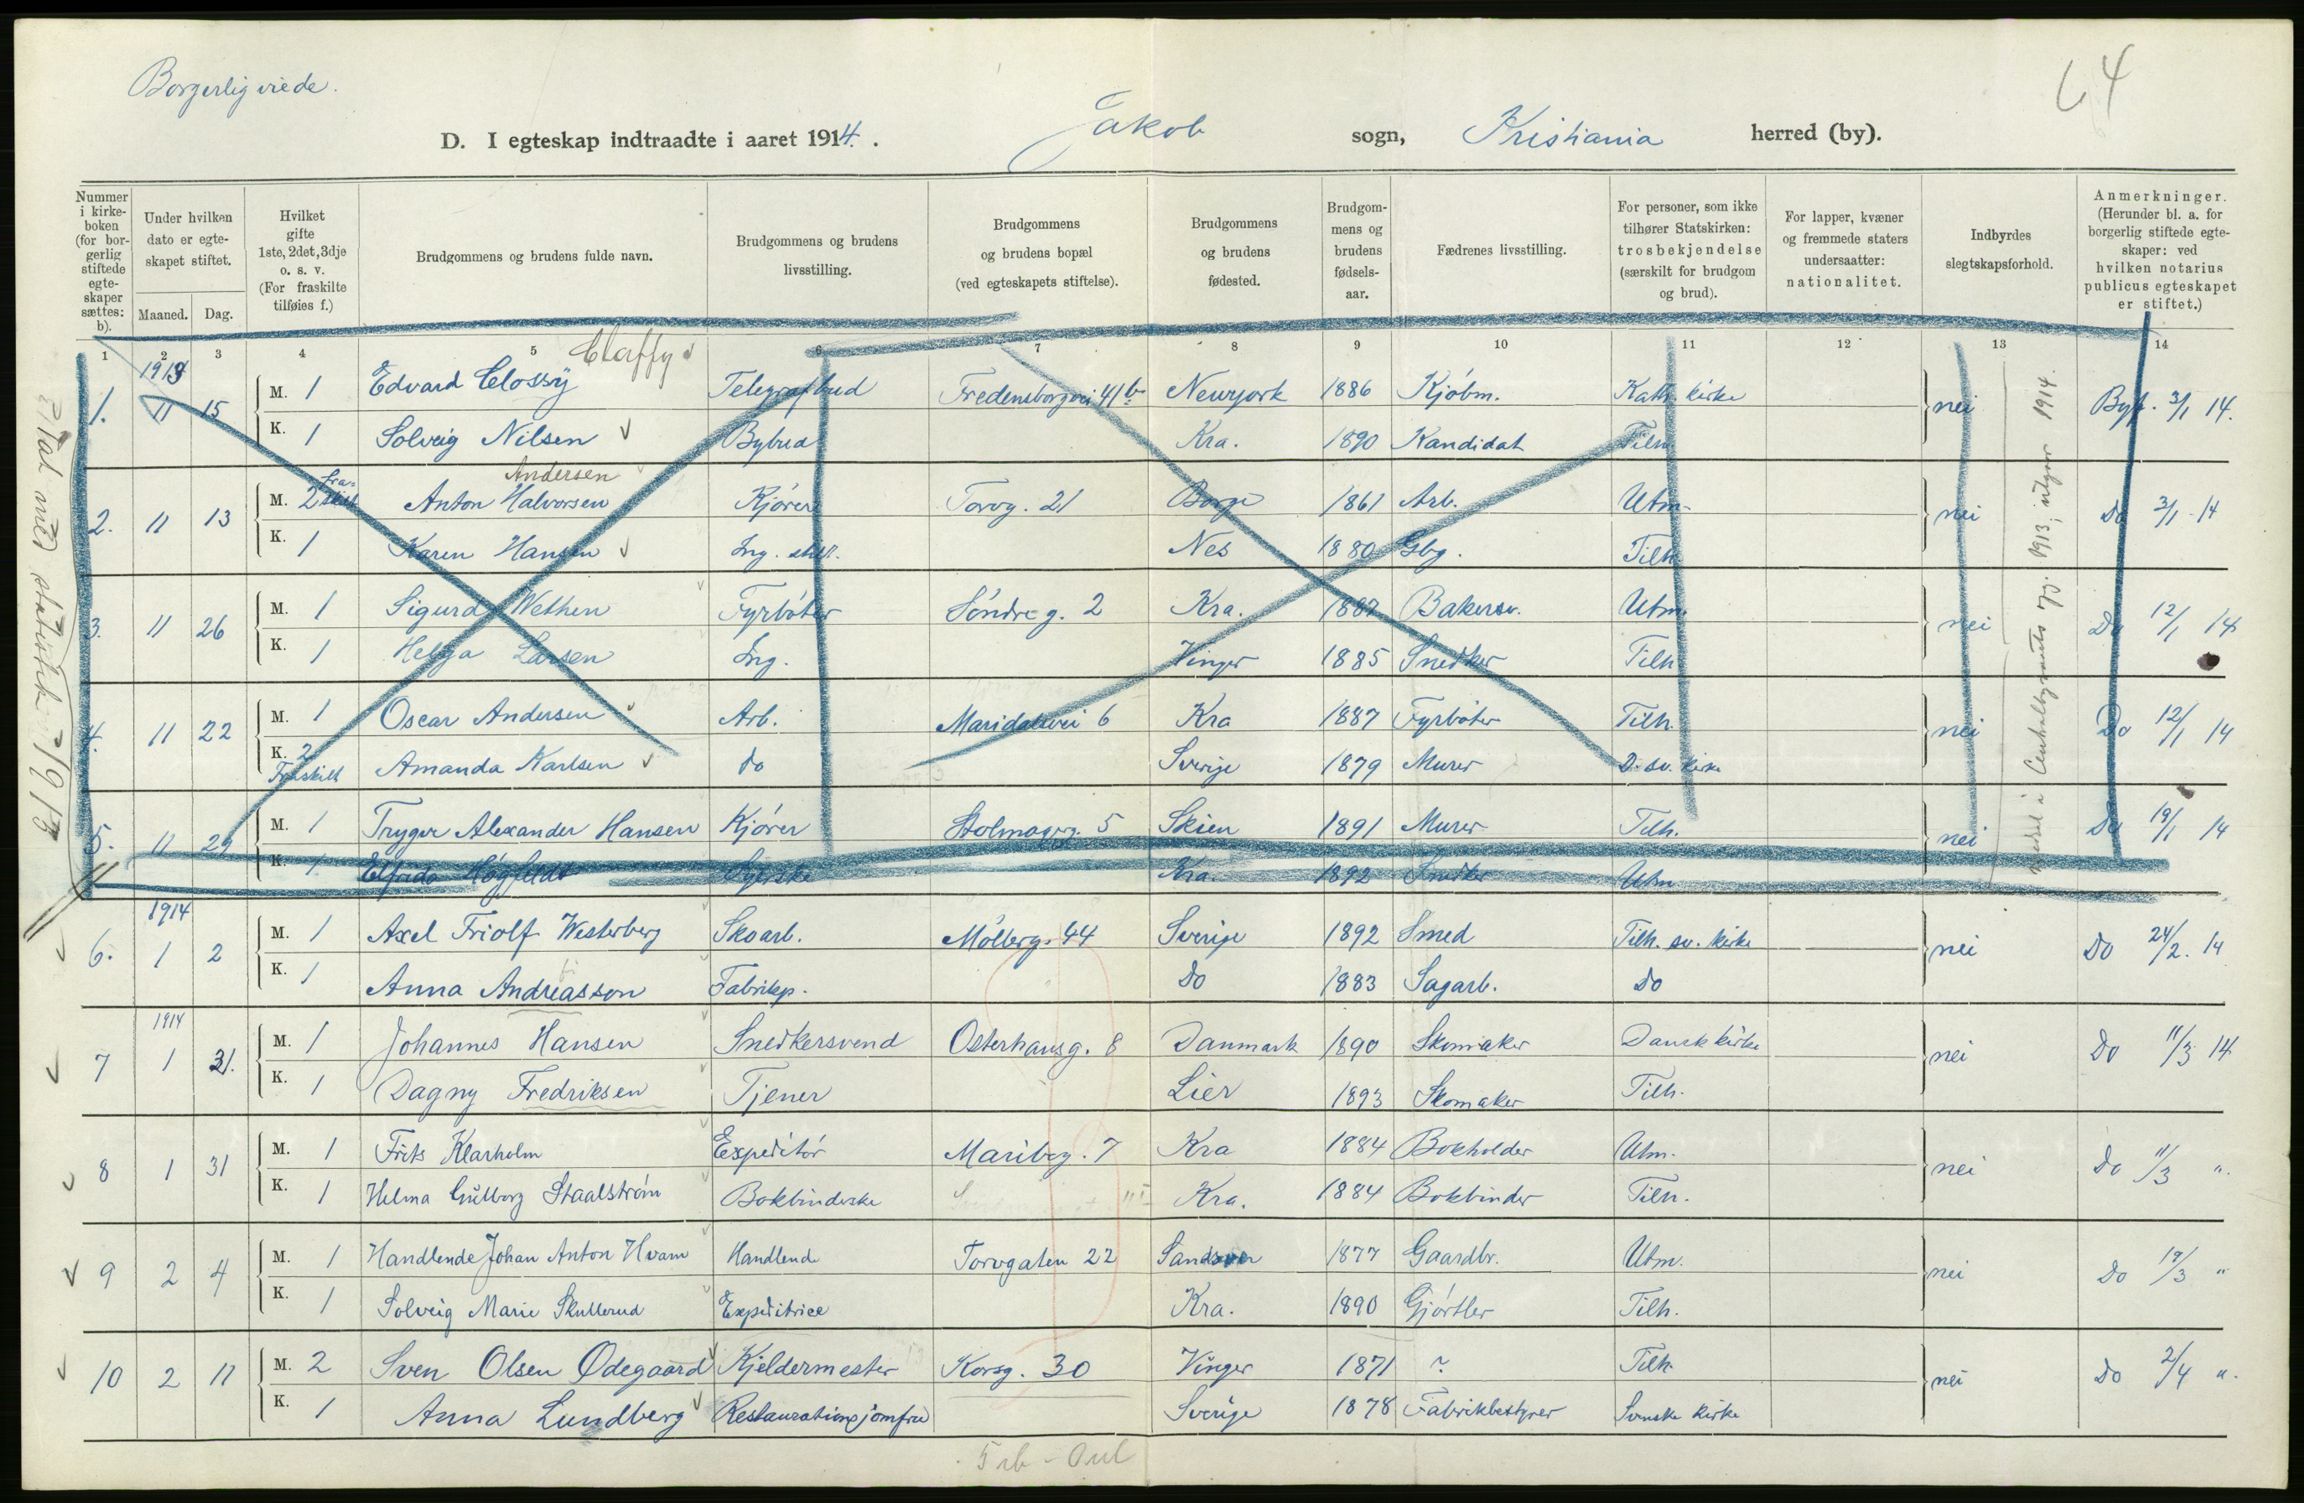 Borgerlig viede.
64
D. I egteskap indtraadte i aaret 1914. Jakob sogn, Kristiania herred (by).
Nummer i kirkeboken (for borgerlig stiftede egteskaper sættes: b).
Under hvilken dato er egteskapet stiftet.
Maaned. Dag.
Hvilket gifte 1ste, 2det, 3dje o. s. v. (For fraskilte tilføies f.)
Brudgommens og brudens fulde navn.
Brudgommens og brudens livsstilling.
Brudgommens og brudens bopæl (ved egteskapets stiftelse).
Brudgommens og brudens fødested.
Brudgommens og brudens fødselsaar.
Fædrenes livsstilling.
For personer, som ikke tilhører Statskirken: trosbekjendelse (særskilt for brudgom og brud).
For lapper, kvæner og fremmede staters undersaatter: nationalitet.
Indbyrdes slegtskapsforhold.
Anmerkninger. (Herunder bl. a. for borgerlig stiftede egteskaper: ved hvilken notarius publicus egteskapet er stiftet.)
1 2 3 4 5 6 7 8 9 10 11 12 13 14
Claffy
1913
1. 11 15 M. 1 Edvard Clossy Telegrafbud Fredensborgvei 41b Newyork 1886 Kjøbm. Kath. kirke nei Byf. 3/1 14.
K. 1 Solveig Nilsen Bybud Kra. 1890 Kandidat Tilh.
Andersen
2. 11 13 M. 2 fraskilt Anton Halvorsen Kjører Torvg. 21 Borge 1861 Arb. Utm. nei Do 3/1 14
K. 1 Karen Hansen Ing. Nes 1880 Gbg. Tilh.
3. 11 26 M. 1 Sigurd Wethen Fyrbøter Søndreg. 2 Kra. 1887 Bakersv. Utm. nei Do 12/1 14
K. 1 Helga Larsen Ing. Vinger 1885 Snedker Tilh.
4. 11 22 M. 1 Oscar Andersen Arb. Maridalsvei 6 Kra 1887 Fyrbøter Tilh. nei Do 12/1 14
K. 2 Fraskilt Amanda Karlsen do Sverige 1879 Murer D. sv. kirke
5. 11 29 M. 1 Trygve Alexander Hansen Kjører Stolmagerg. 5 Skien 1891 Murer Tilh. nei Do 19/1 14
K. 1 Elfrida Høgfeldt Syerske Kra 1892 Snedker Utm.
1914
6. 1 2 M. 1 Axel Friolf Westerberg Skoarb. Møllerg. 44 Sverige 1892 Smed Tilh. sv. kirke nei Do 24/2. 14
K. 1 Anna Andreasson Fabrikp. Do 1883 Sagarb. Do
1914
7 1 31. M. 1 Johannes Hansen Snedkersvend Osterhausg. 8 Danmark 1890 Skomaker Dansk kirke nei Do 11/3 14
K. 1 Dagny Fredriksen Tjener Lier 1893 Skomaker Tilh.
8 1 31 M. 1 Frits Klarholm Expeditør Maribog. 7 Kra 1884 Bokholder Utm. nei Do 11/3 "
K. 1 Helma Gulborg Staalstrøm Bokbinderske Kra. 1884 Bokbinder Tilh.
9 2 4 M. 1 Handlende Johan Anton Hvam Handlende Torvgaten 22 Sandsver 1877 Gaardbr. Utm. nei Do 19/3 "
K. 1 Solveig Marie Skullerud Expeditrice Kra. 1890 Gjørtler Tilh.
10 2 11 M. 2 Sven Olsen Ødegaard Kjeldermester Korsg. 30 Vinger 1871 ? Tilh. nei Do 2/4 "
K. 1 Anna Lundberg Restaurationsjomfru Sverige 1878 Fabrikbestyrer Svenske kirke